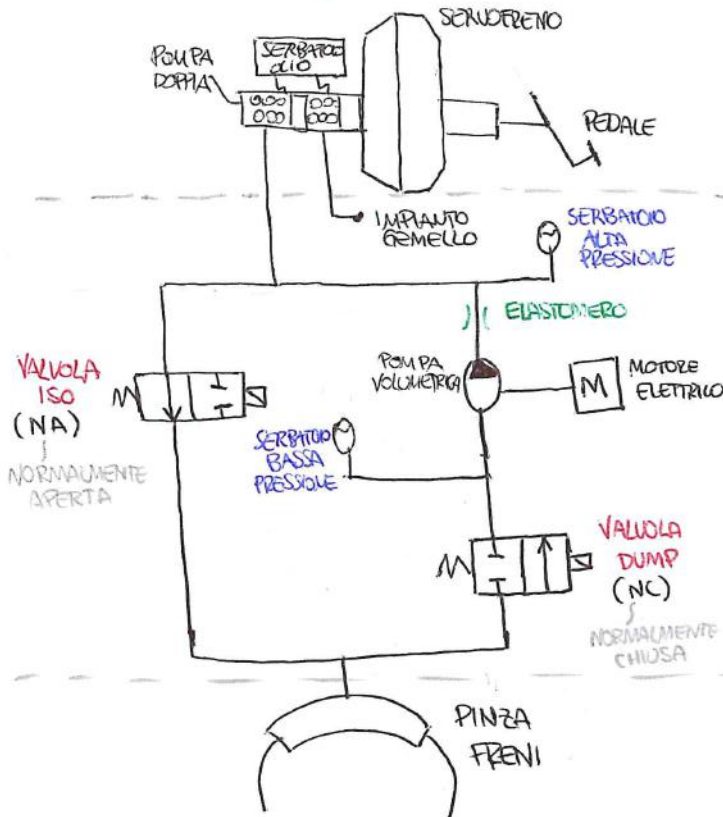 SERVOFRENO
SERBATOIO
OLIO
POMPA
DOPPIA
PEDALE
IMPIANTO
GEMELLO
SERBATOIO
ALTA
PRESSIONE
ELASTOMERO
VALVOLA
ISO
(NA)
NORMALMENTE
APERTA
POMPA
VOLUMETRICA
M
MOTORE
ELETTRICO
SERBATOIO
BASSA
PRESSIONE
VALVOLA
DUMP
(NC)
NORMALMENTE
CHIUSA
PINZA
FRENI